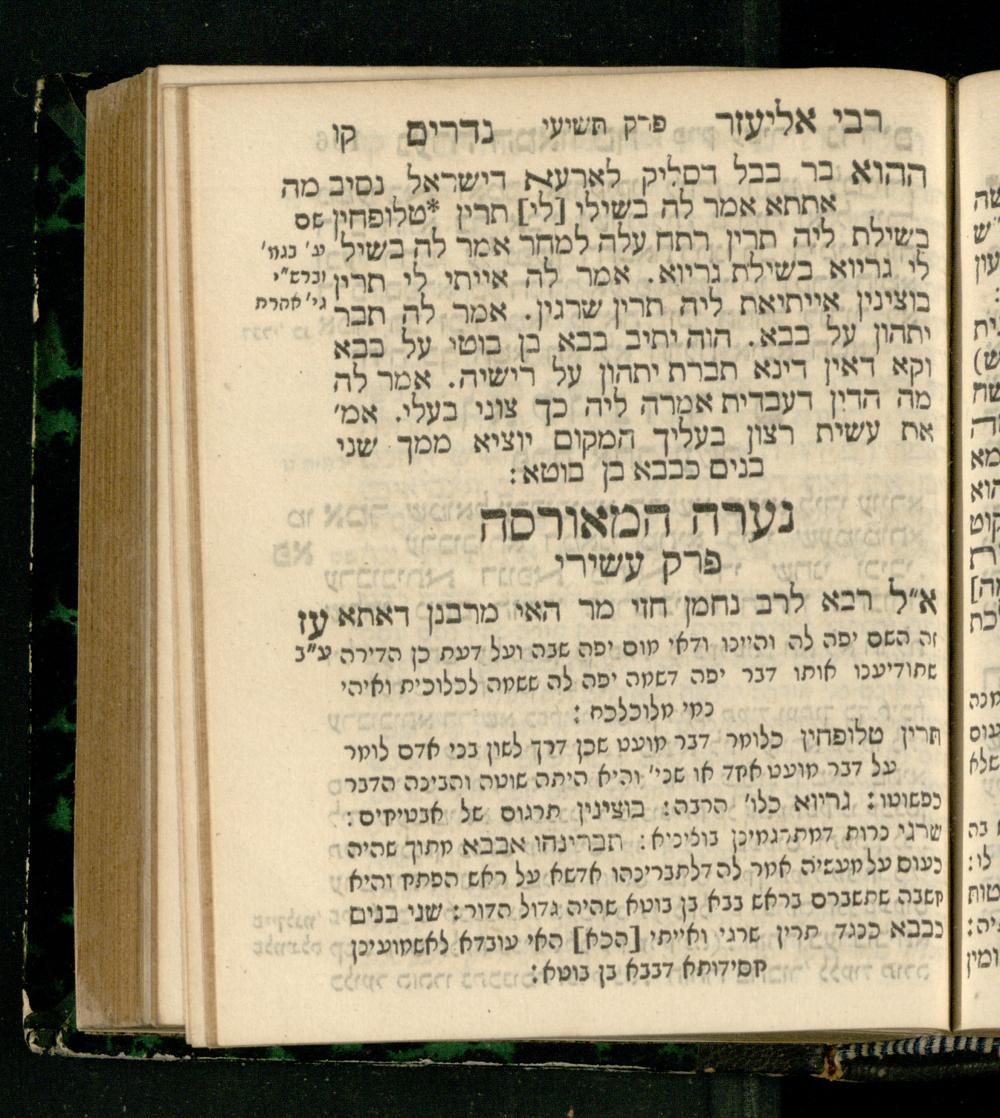 רבי אליעזר פרק תשיעי נדרים קו
ההוא בר בבל דסליק לארעא דישראל נסיב מה
אתתא אמר לה בשילי [לי] תרין *טלופחין שם
בשילת ליה תרין רתח עלה למחר אמר לה בשיל' ע' בגמ'
לי גריוא בשילת גריוא. אמר לה אייתי לי תרין וברש"י
בוצינין אייתיאת ליה תרין שרגין. אמר לה תבר גי' אחרת
יתהון על בבא. הוה יתיב בבא בן בוטי על בבא
וקא דאין דינא תברת יתהון על רישיה. אמר לה
מה הדין דעבדית אמרה ליה כך צוני בעלי. אמ'
את עשית רצון בעליך המקום יוציא ממך שני
בנים כבבא בן בוטא:
נערה המאורסה
פרק עשירי
א"ל רבא לרב נחמן חזי מר האי מרבנן דאתא עז
זה השם יפה לה והיינו ודאי מום יפה שבה ועל דעת כן הדירה ע"ב
שתודיענו אותו דבר יפה דשמה יפה לה ששמה לכלוכית ואיהי
נמי מלוכלכת:
תרין טלופחין כלומר דבר מועט שכן דרך לשון בני אדם לומר
על דבר מועט אחד או שני' והיא היתה שוטה והבינה הדבר
כפשוטו: גריוא כלו' הרבה: בוצינין תרגום של אבטיחים:
שרגי נרות דמתרגמינן בוציניא: תברינהו אבבא מתוך שהיה
כעוס על מעשיה אמר לה דלתברינהו אדשא על ראש הפתח והיא
חשבה שתשברם בראש בבא בן בוטא שהיה גדול הדור: שני בנים
כבבא כנגד תרין שרגי ואייתי [הכא] האי עובדא לאשמועינן
חסידותא דבבא בן בוטא: